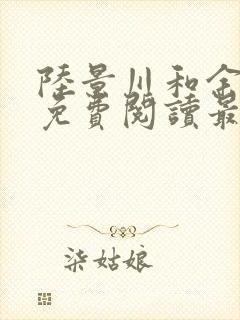 陸景川和金
免費閱讀最
柒姑娘